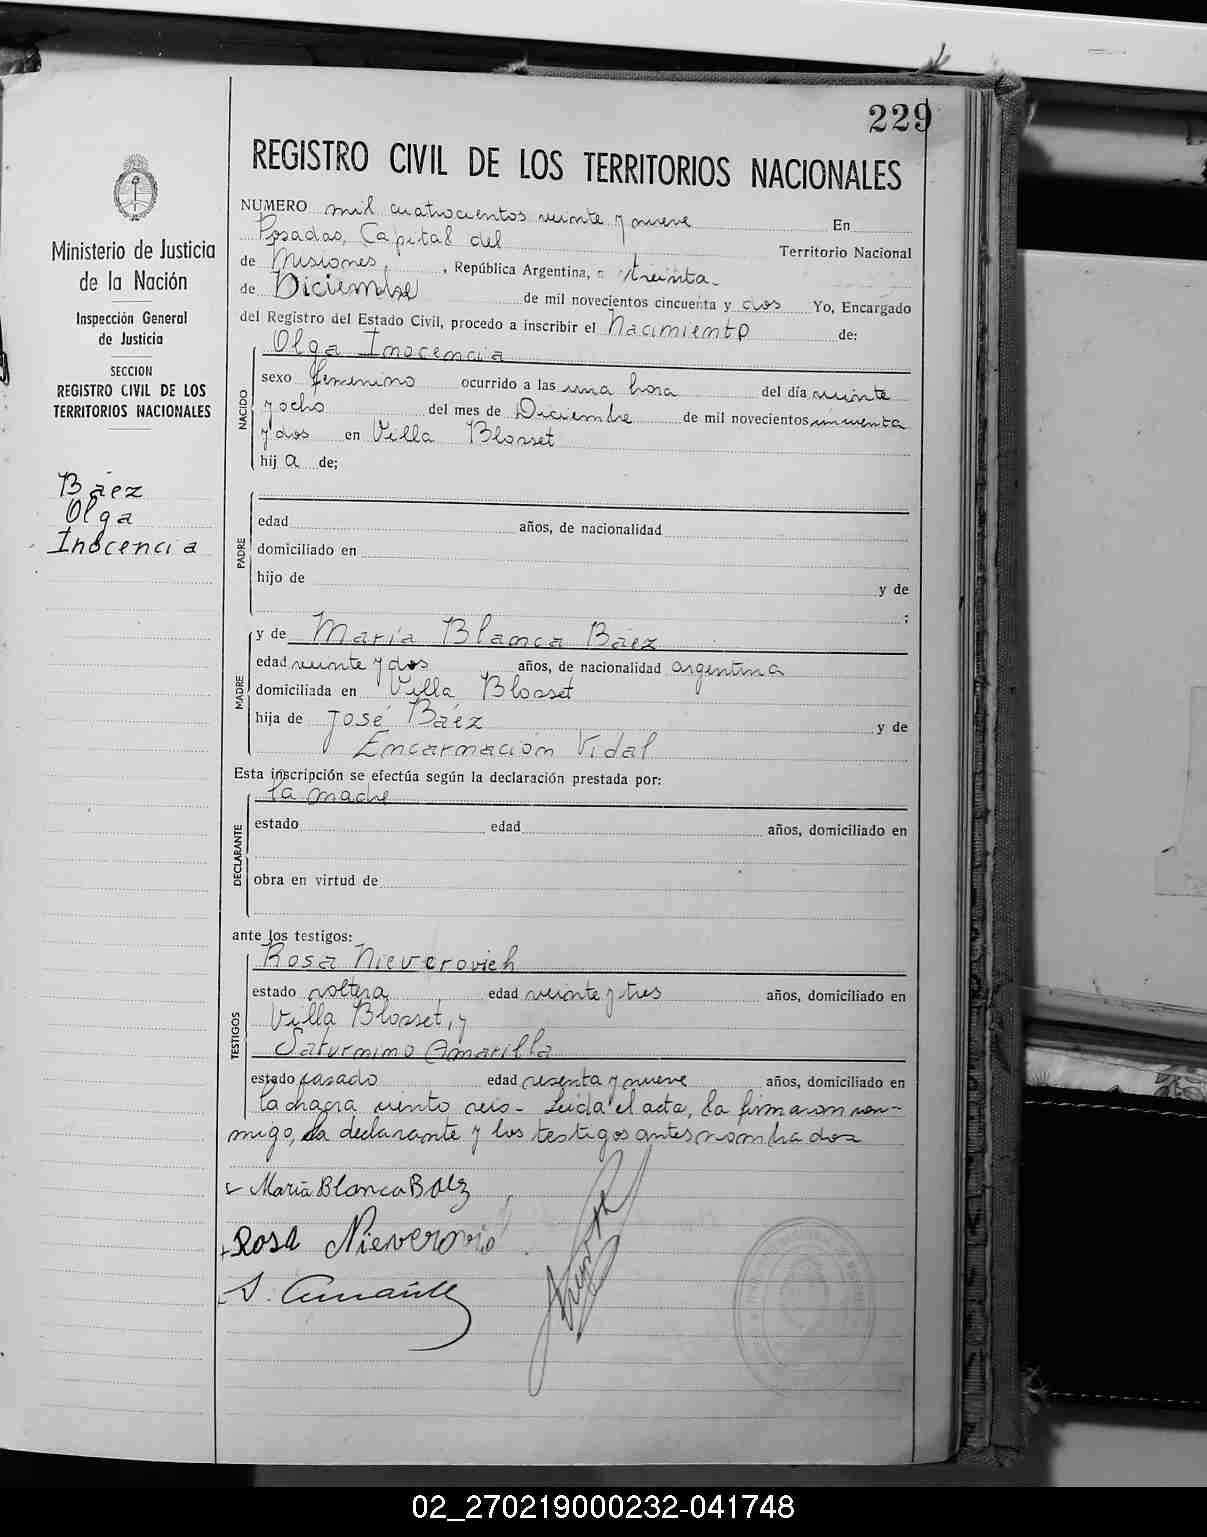 229
REGISTRO CIVIL DE LOS TERRITORIOS NACIONALES
Ministerio de Justicia
de la Nación
Inspección General
de Justicia
SECCION
REGISTRO CIVIL DE LOS
TERRITORIOS NACIONALES
Báez
Olga
Inocencia
NUMERO mil cuatrocientos veinte y nueve En
Posadas, Capital del Territorio Nacional
de Misiones, , República Argentina, a treinta
de Diciembre de mil novecientos cincuenta y dos Yo, Encargado
del Registro del Estado Civil, procedo a inscribir el Nacimiento de:
NACIDO
Olga Inocencia
sexo femenino ocurrido a las una hora del día veinte
y ocho del mes de Diciembre de mil novecientos cincuenta
y dos en Villa Blosset
hij a de;
PADRE
edad años, de nacionalidad
domiciliado en
hijo de y de
;
MADRE
y de María Blanca Báez
edad veinte y dos años, de nacionalidad argentina
domiciliada en Villa Blosset
hija de José Báez y de
Encarnación Vidal
Esta inscripción se efectúa según la declaración prestada por:
DECLARANTE
la madre
estado edad años, domiciliado en
obra en virtud de
ante los testigos:
TESTIGOS
Rosa Nieverovich
estado soltera edad veinte y tres años, domiciliado en
Villa Blosset, y
Saturnino Amarilla
estado casado edad sesenta y nueve años, domiciliado en
la chacra ciento seis - Leída el acta, la firmaron con-
migo, la declarante y los testigos antes nombrados
María Blanca Baez
Rosa Nieverovich
S. Amarilla
02_270219000232-041748